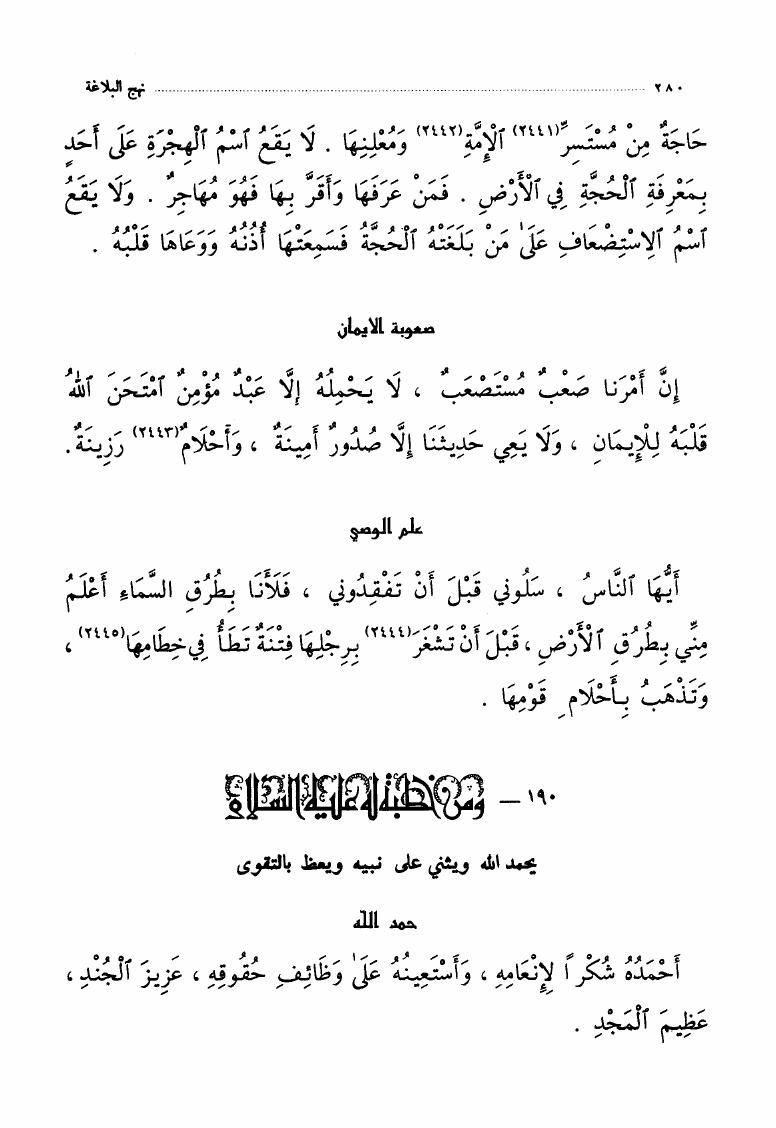 ٢٨٠ ........................ نهج البلاغة
حَاجَةٌ مِنْ مُسْتَسِرِّ(٢٤٤١) ٱلْإِمَّةِ(٢٤٤٢) وَمُعْلِنِهَا . لَا يَقَعُ ٱسْمُ ٱلْهِجْرَةِ عَلَى أَحَدٍ
بِمَعْرِفَةِ ٱلْحُجَّةِ فِي ٱلْأَرْضِ . فَمَنْ عَرَفَهَا وَأَقَرَّ بِهَا فَهُوَ مُهَاجِرٌ . وَلَا يَقَعُ
ٱسْمُ ٱلِاسْتِضْعَافِ عَلَىٰ مَنْ بَلَغَتْهُ ٱلْحُجَّةُ فَسَمِعَتْهَا أُذُنُهُ وَوَعَاهَا قَلْبُهُ .
صعوبة الايمان
إِنَّ أَمْرَنا صَعْبٌ مُسْتَصْعَبٌ ، لَا يَحْمِلُهُ إِلَّا عَبْدٌ مُؤْمِنٌ ٱمْتَحَنَ ٱللهُ
قَلْبَهُ لِلْإِيمَانِ ، وَلَا يَعِي حَدِيثَنَا إِلَّا صُدُورٌ أَمِينَةٌ ، وَأَحْلَامٌ(٢٤٤٣) رَزِينَةٌ.
علم الوصي
أَيُّهَا ٱلنَّاسُ ، سَلُونِي قَبْلَ أَنْ تَفْقِدُونِي ، فَلَأَنَا بِطُرُقِ السَّمَاءِ أَعْلَمُ
مِنِّي بِطُرُقِ ٱلْأَرْضِ ، قَبْلَ أَنْ تَشْغَرَ(٢٤٤٤) بِرِجْلِهَا فِتْنَةٌ تَطَأُ فِي خِطَامِهَا(٢٤٤٥) ،
وَتَذْهَبُ بِأَحْلَامِ قَوْمِهَا .
١٩٠ – ومن خطبة له عليه السلام
يحمد الله ويثني على نبيه ويعظ بالتقوى
حمد الله
أَحْمَدُهُ شُكْراً لِإِنْعَامِهِ ، وَأَسْتَعِينُهُ عَلَىٰ وَظَائِفِ حُقُوقِهِ ، عَزِيزَ ٱلْجُنْدِ ،
عَظِيمَ ٱلْمَجْدِ .